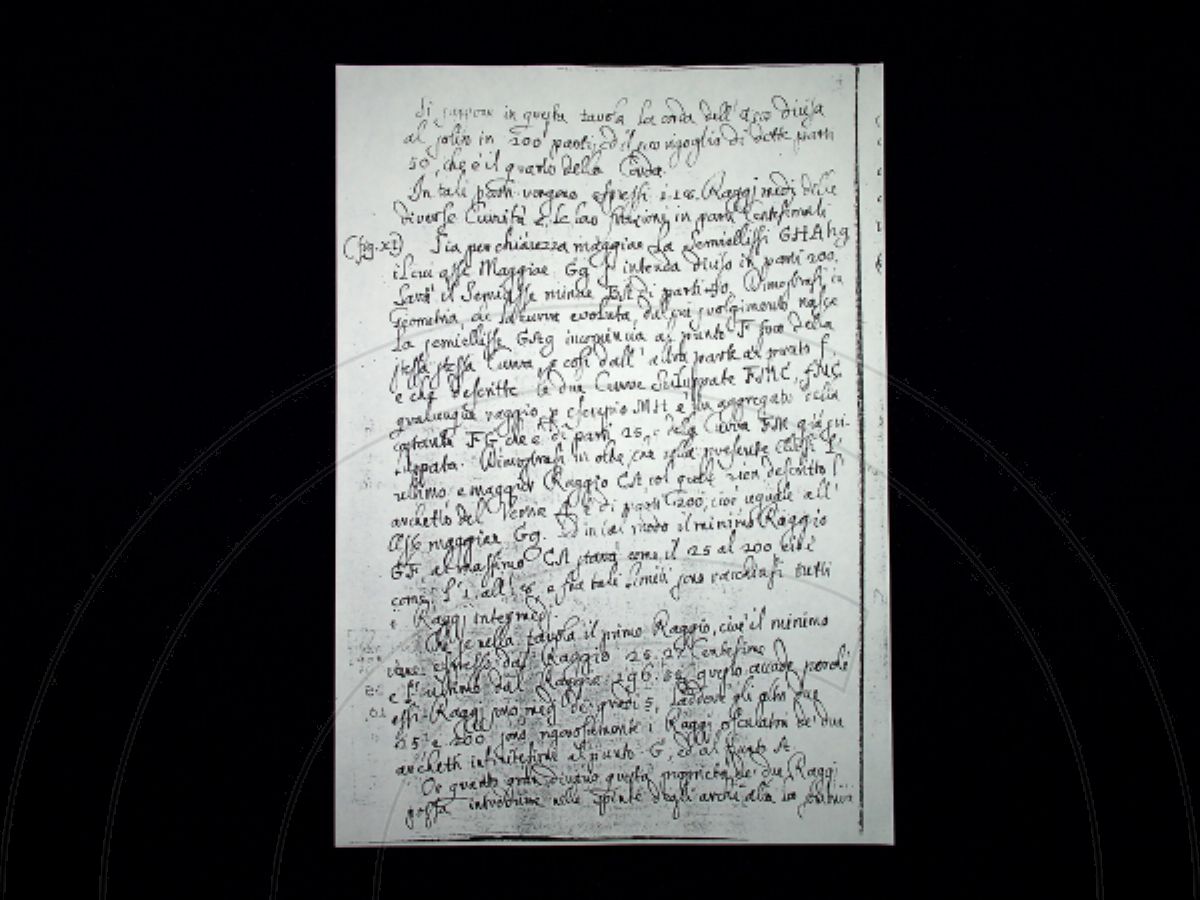 Si suppone in questa tavola la corda dell'Arco divisa
al solito in 200 parti, ed il suo rigoglio di dette parti
50, che è il quarto della Corda.
In tali parti vengono espressi i 18. Raggi medj delle
diverse Curvità e le loro frazioni in parti Centesimali
(fig. XI) Sia per chiarezza maggiore la Semiellissi GHAhg
il cui asse Maggiore Gg s'intenda diviso in parti 200.
Sarà il Semiasse minore BA di parti 50. Dimostrasi in
Geometria, che la curva evoluta, dal cui svolgimento nasce
la semiellisse GAg incomincia al punto F foco della
stessa stessa Curva, e così dall'altra parte al punto f.
e che descritte le due Curve Sviluppate FMC, fNC
qualunque raggio p. esempio MH è un aggregato della
costante FG che è di parti 25, e della Curva FM già svi-
luppata. Dimostrasi in oltre, che nella presente Ellissi l'
ultimo e maggior Raggio CA col quale vien descritto l'
archetto del Vertice A è di parti 200, cioè uguale all'
Asse maggiore Gg. Ed in tal modo il minimo Raggio
GF, al massimo CA starà come il 25 al 200 cioè
come l'1. all'8, e fra tali limiti sono racchiusi tutti
i Raggi intermedj.
Che se nella tavola il primo Raggio, cioè il minimo
viene espresso dal Raggio 25.27 Centesime
e l'ultimo dal Raggio 196. questo accade perché
essi Raggi sono medj de' gradi 5, laddove gli altri due
25 e 200 sono rigorosamente i Raggi osculatori de' due
archetti infinitesimi al punto G, ed al punto A.
Or quanto gran divario questa proprietà de' due Raggi
possa introdurre nelle spinte degli archi alla lor